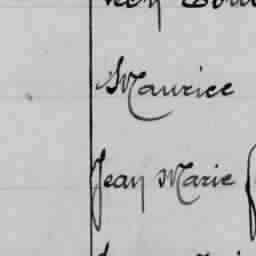 Maurice
Jean Marie